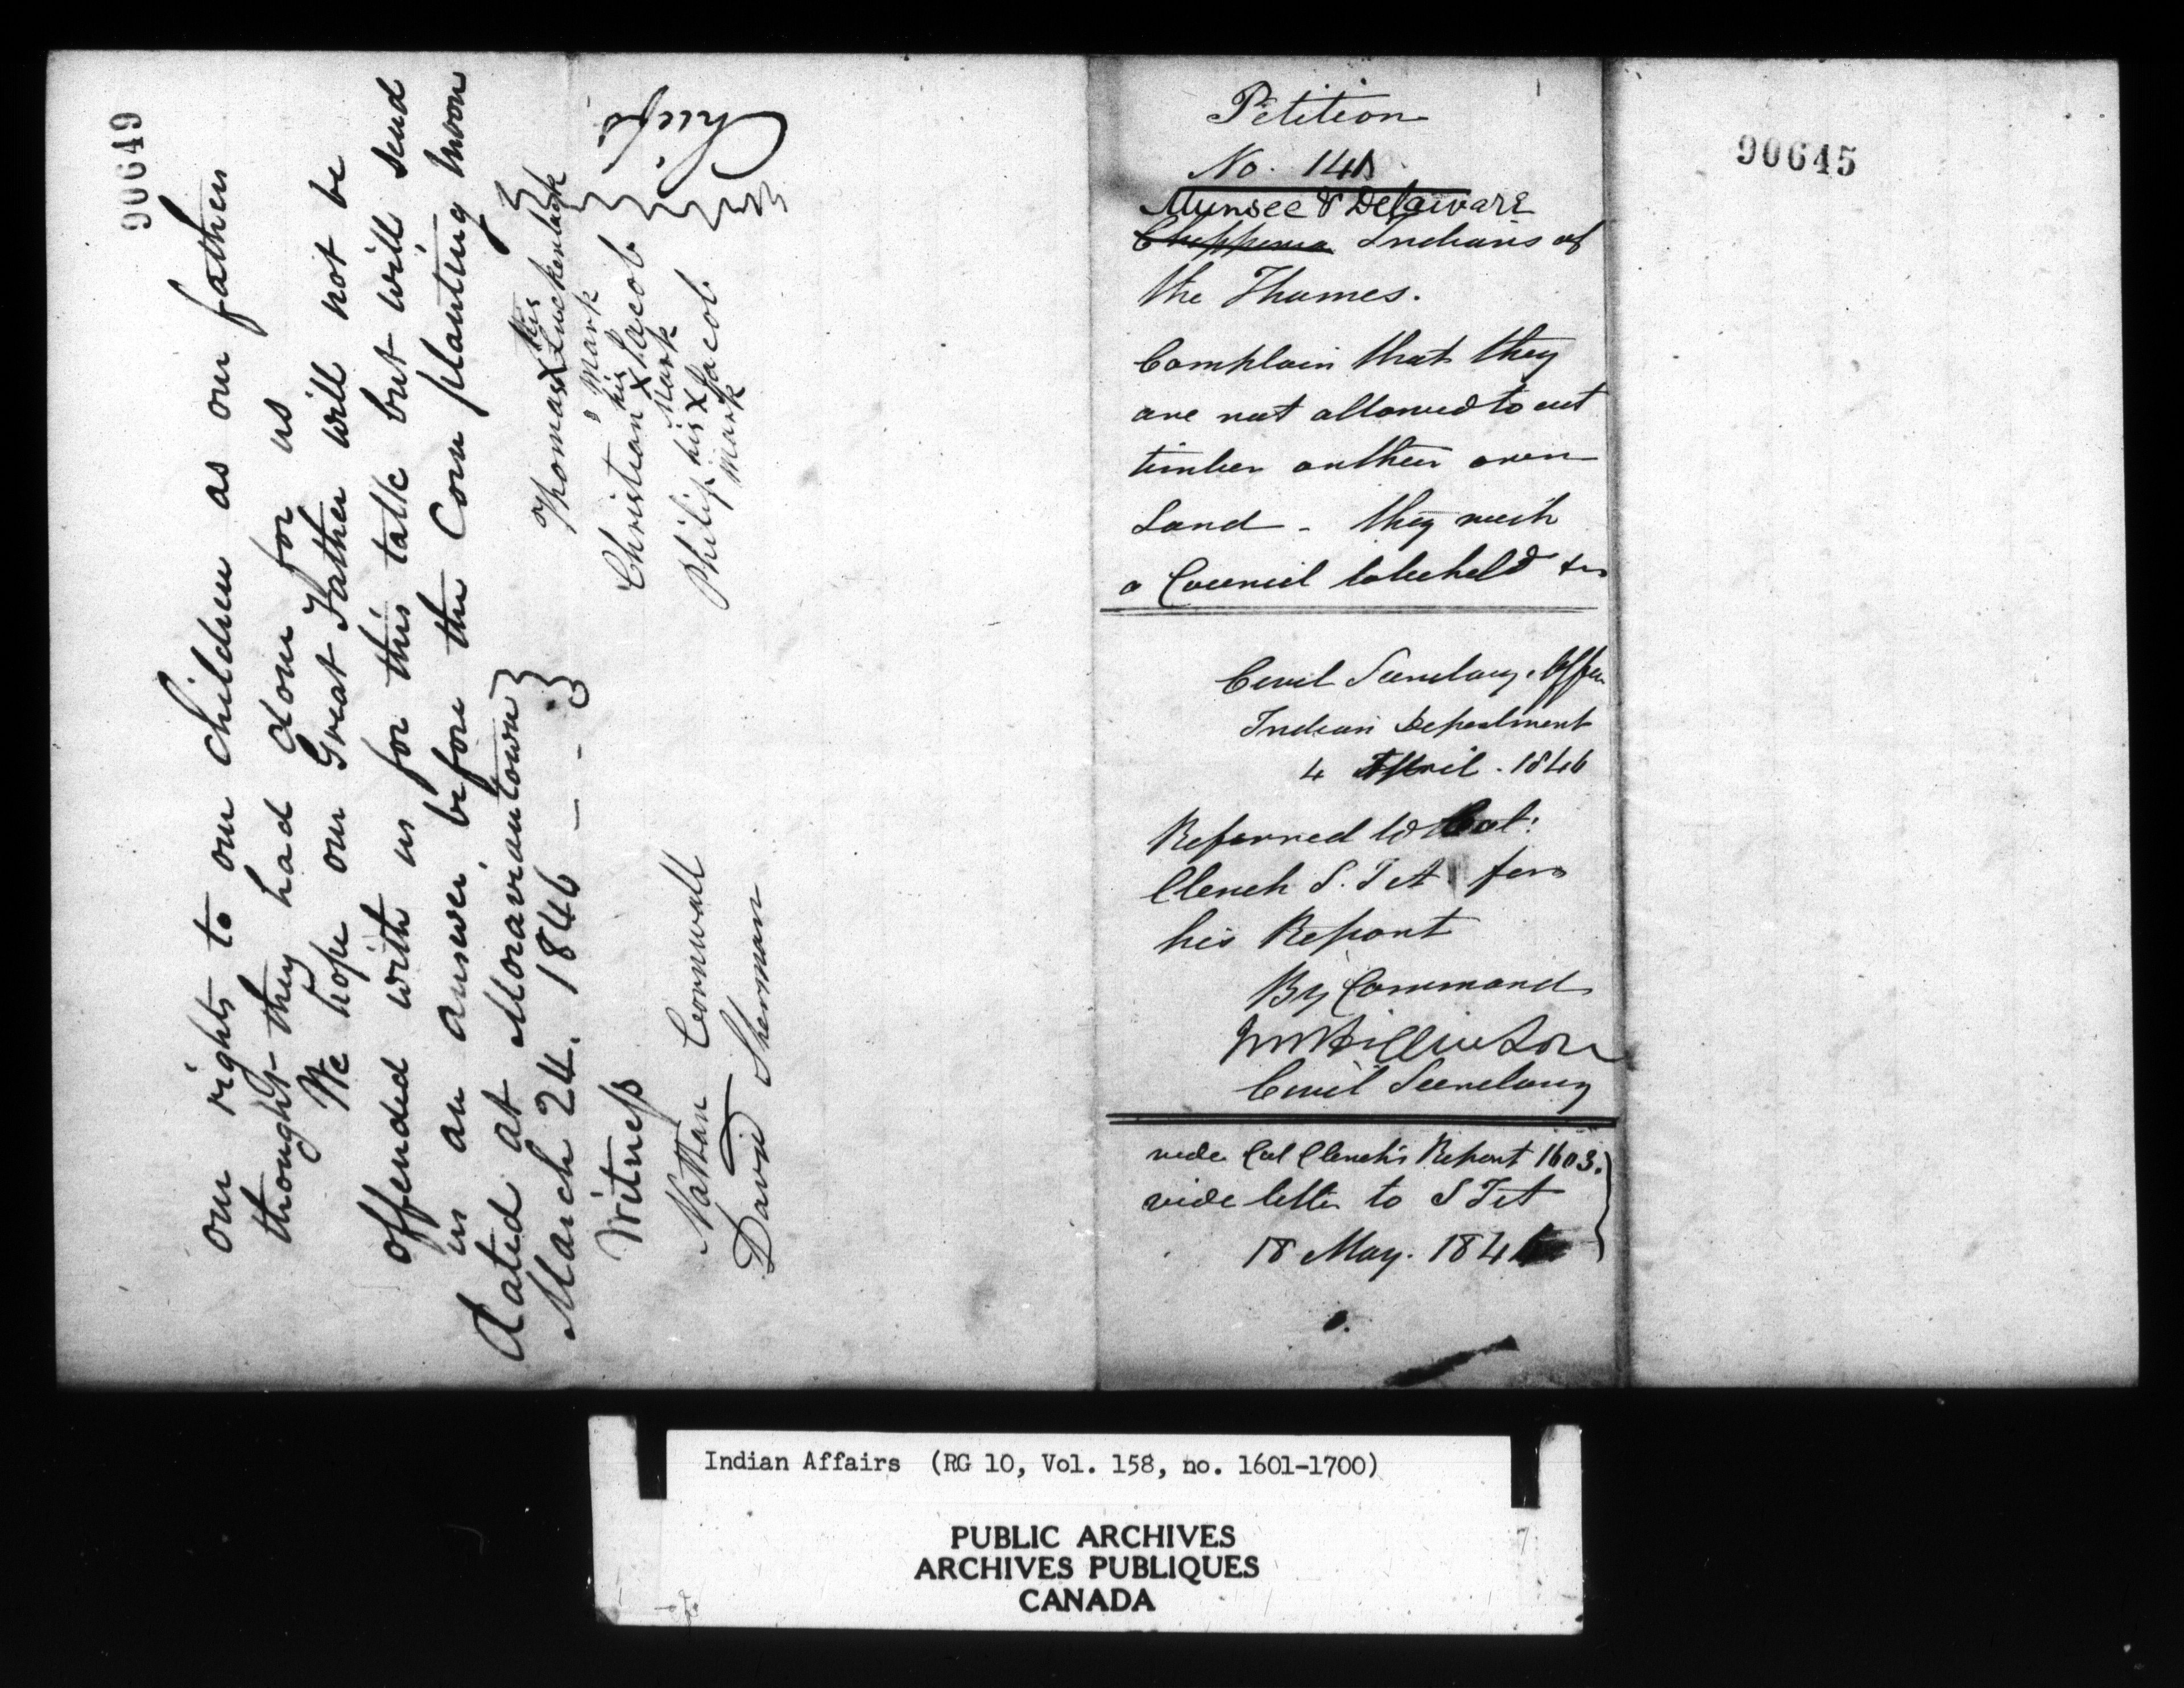 90649
our rights to our children as our fathers
thought they had done for us
We hope our Great Father will not be
offended with us for this talk but will send
us an answer before the Corn planting moon
dated at Moraviantown
March 24. 1846
Witness
Nathan Cornwall
David Sherman
Thomas his X Mark Luckenbach
Christian his X Mark Jacob
Philip his X Mark Jacob
Chiefs
Petition
No. 141
Munsee & Delaware
Chippewa Indians of
the Thames.
Complain that they
are not allowed to cut
timber on their own
Land - they wish
a Council to be held &c
Civil Secretary's Office
Indian Department
4 April. 1846
Referred to Col:
Clench S. I A for
his Report
By Command
Civil Secretary
vide Col Clench's Report 1603.
vide letter to S I A
18 May. 1846
90645
Indian Affairs (RG 10, Vol. 158, no. 1601-1700)
PUBLIC ARCHIVES
ARCHIVES PUBLIQUES
CANADA